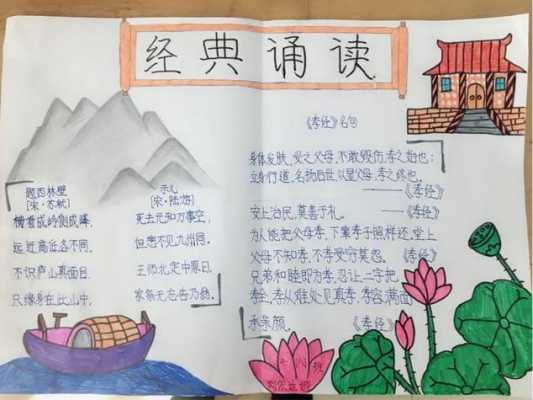 经典诵读
题西林壁
[宋·苏轼]
横看成岭侧成峰,
远近高近各不同。
不识庐山真面目,
只缘身在此山中。
示儿
[宋·陆游]
死去元知万事空,
但悲不见九州同。
王师北定中原日,
家祭无忘告乃翁。
《孝经》名句
身体发肤,受之父母,不敢毁伤,孝之始也;
立身行道,名扬后世,以显父母,孝之终也。
——《孝经》
安上治民,莫善于礼。 ——《孝经》
为人能把父母孝,下辈孝子照样还,堂上
父母不知孝,不孝受穷莫怨。《孝经》
兄弟和睦即为孝,忍让二字把
孝全,孝从难处见真孝,孝容满面
承亲颜。 《孝经》
十八班